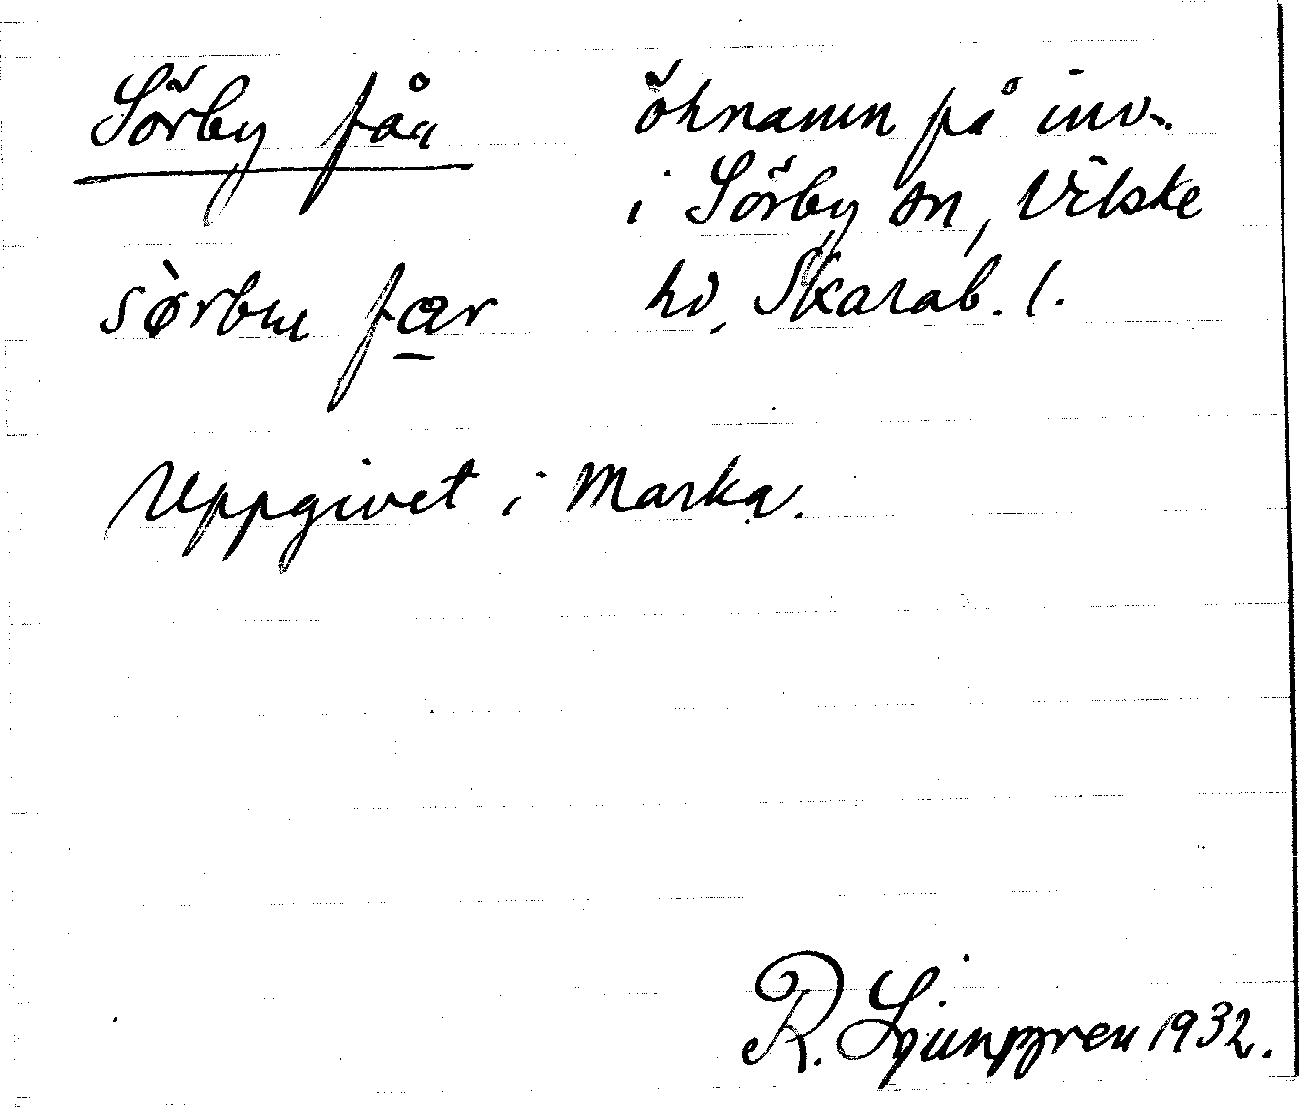 Sörby får öknamn på inv.
i Sörby sn, Vilske
sòrbuı fær hd, Skarab. l.
Uppgivet i Marka.
R. Ljunggren 1932.